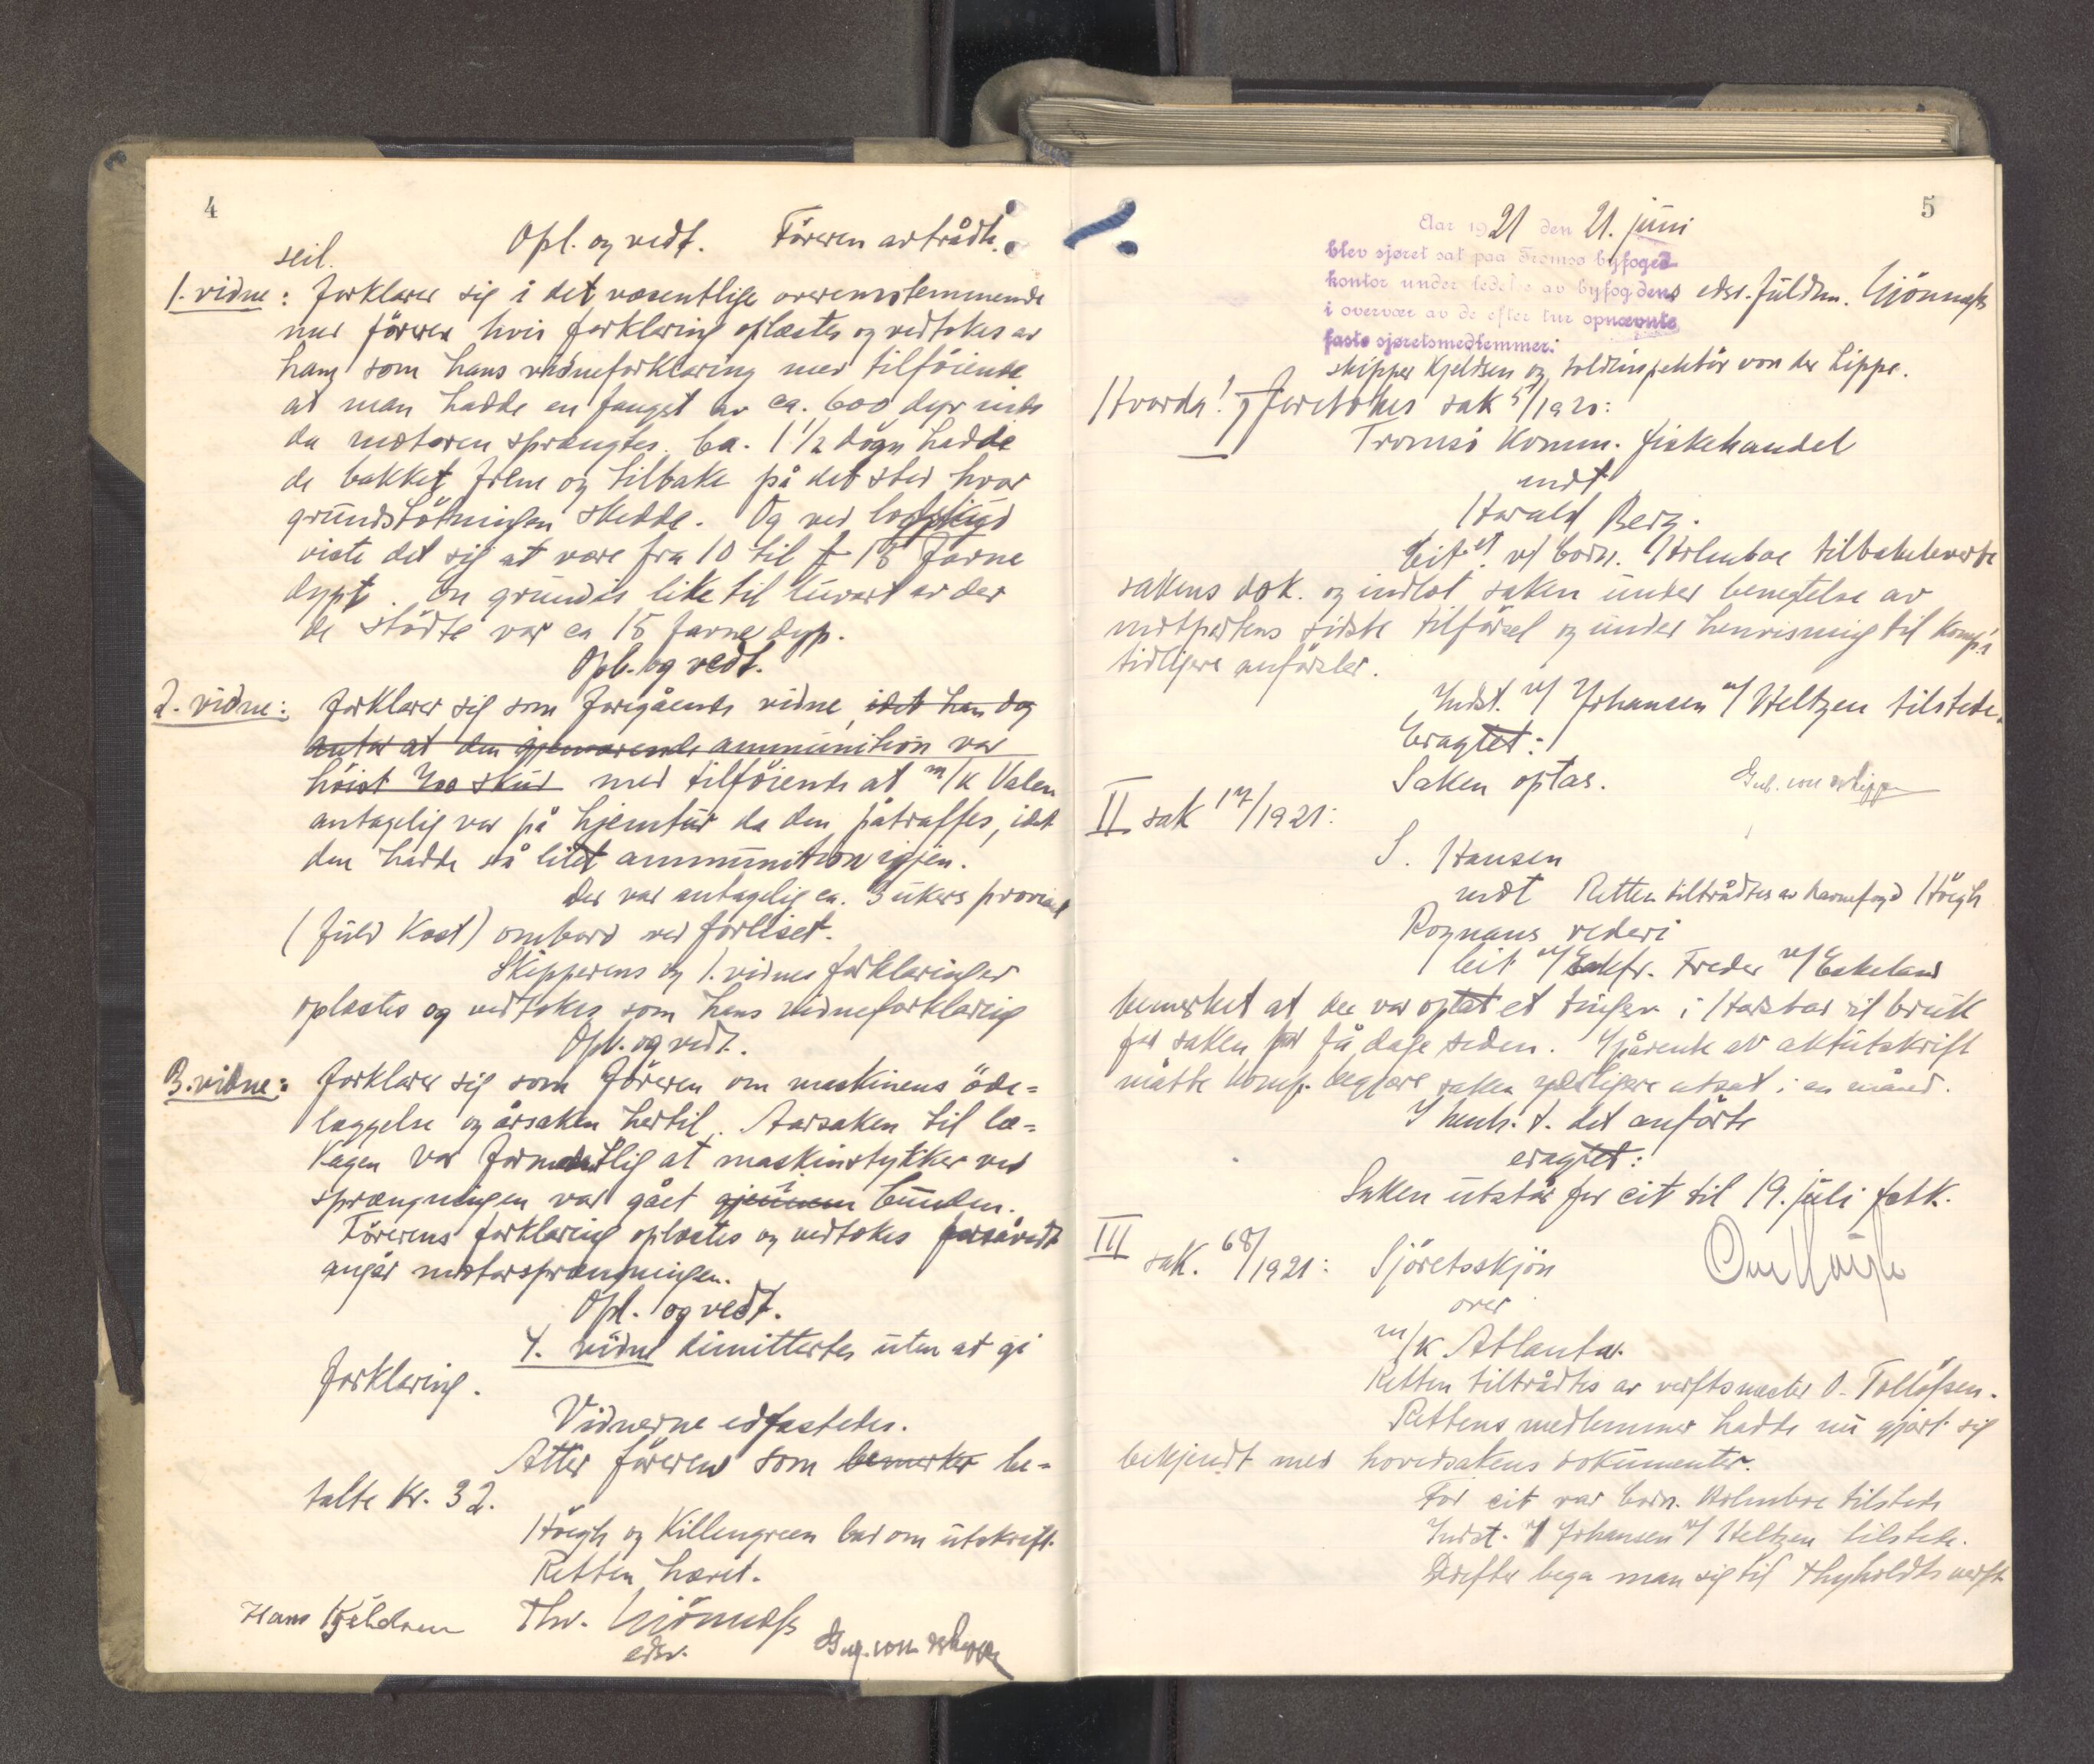 4
Opl. og vedt. Föreren artrådte.
seil.
1. vidne: Forklarer sig i det væsentlige overensstemmende
med föreren hvis forklaring oplæstes og vedtokes av
ham som hans vidneforklaring med tilföiende
at man hadde en fangst av ca. 600 dyr inde
da motoren sprængtes. Ca. 1 1/2 dögn hadde
de bakket frem og tilbake på det sted hvor
grundstötningen skedde. Og ved
viste det sig at være fra 10 til 18 favne
dypt. En grundis like til luvart av der
de stödte var ca 15 favne dyp.
Opl. og vedt.
2. vidne: Forklarer sig som foregående vidne, idet han dog
antar at den gjenværende ammunition var
höist 400 skud med tilföiende at m/k Valen
antagelig var på hjemtur da den påtraffes, idet
den hadde så litet ammunition igjen.
Der var antagelig ca. 3 ukers proviant
(fuld kost) ombord ved forliset.
Skipperens og 1. vidnes forklaringer
oplæstes og vedtokes som hans vidneforklaring
Opl. og vedt.
3. vidne: Forklarer sig som föreren om maskinens öde=
læggelse og årsaken hertil. Aarsaken til læ=
kagen var formentlig at maskinstykker ved
sprængningen var gået gjennem bunden.
Förerens forklaring oplæstes og vedtokes forsåvidt
angår motorsprængningen.
Opl. og vedt.
4. vidne dimittertes uten at gi
forklaring.
Vidnerne edfæstedes.
Atter föreren som bemerker be-
talte kr. 32.
Höegh og Killengreen bad om utskrift.
Retten hævet.
Hans Kjeldsen Thv. Gjönnæss
edsv. Gul. von der Lippe
5
Aar 1921 den 21. juni
blev sjøret sat paa Tromsø byfoged-
kontor under ledelse av byfogdens edsv. fuldm. Gjönnæss
i overvær av de efter tur opnævnte
faste sjøretsmedlemmer:
skipper Kjeldsen og toldinspektör von der Lippe.
Hvorda! I Foretokes sak 5/1920:
Tromsö Komm. fiskehandel
mot
Harald Berg.
Cit. v/ Holmboe tilbakeleverte
sakens dok. og indlot saken under benegtelse av
motpartens sidste tilförsel og under henvisning til komp.s
tidligere anförsler.
Indst. v/ Johansen v/ Heltzen tilstede.
Eragtet:
Saken optas. Gul. von der Lippe
II sak 17/1921:
S. Hansen
mot Retten tiltrådtes av havnefogd Höegh
Rognans rederi
Cit v/ Freder v/ Eskeland
bemerket at der var optat et tingsv. i Harstad til bruk
for saken for få dage siden. I påvente av aktutskrift
måtte komp. begjære saken yderligere utsat i en måned.
I henh. t. det anförte
eragtet:
Saken utstår for cit til 19. juli förstk.
III sak. 68/1921: Sjöretsskjön
over
m/k Atlanta.
Retten tiltrådtes av verftsmester O. Tollefsen.
Rettens medlemmer hadde nu gjort sig
bekjendt med hovedsakens dokumenter.
For cit var Holmboe tilstede
Indst. v/ Johansen v/ Heltzen tilstede.
Derefter bega man sig til Thyholdts verft